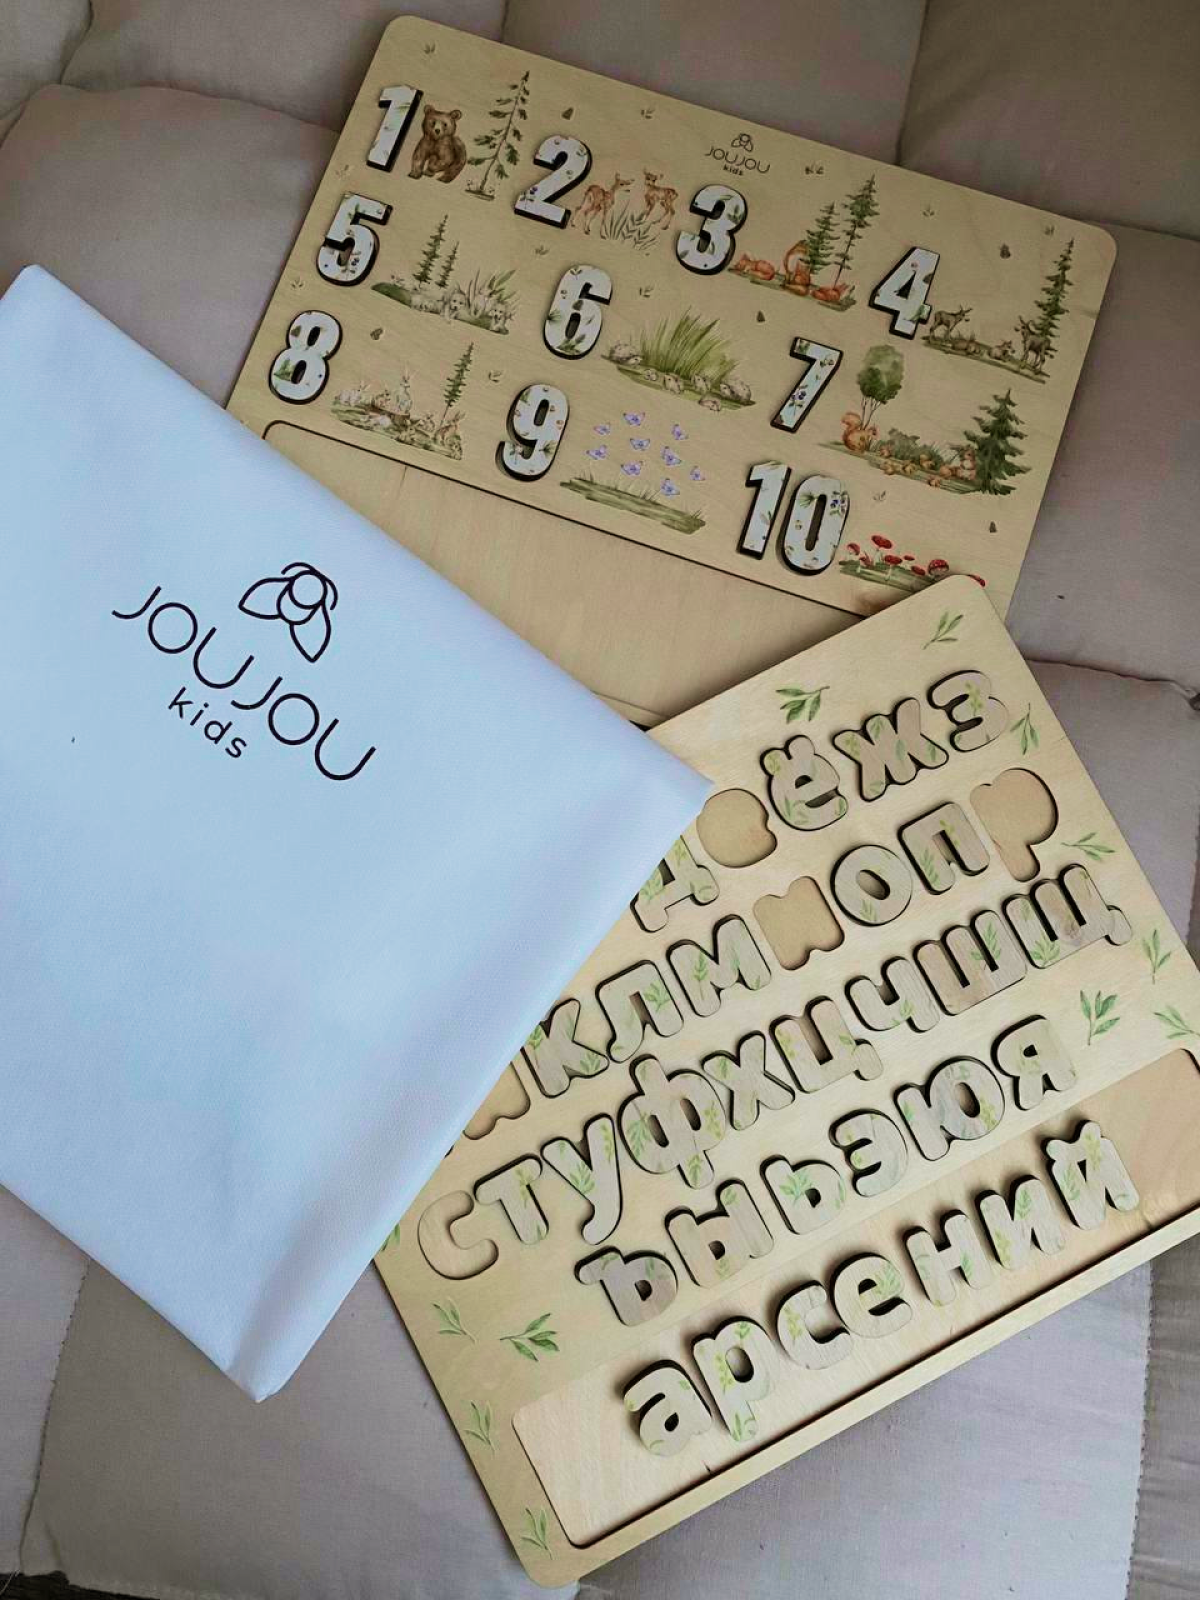 JOUJOU
kids
1 2 3 4
5 6 7
8 9 10
JOUJOU
kids
д ё ж з
к л м о п
с т у ф х ц ч ш щ
ъ ы ь э ю я
арсений